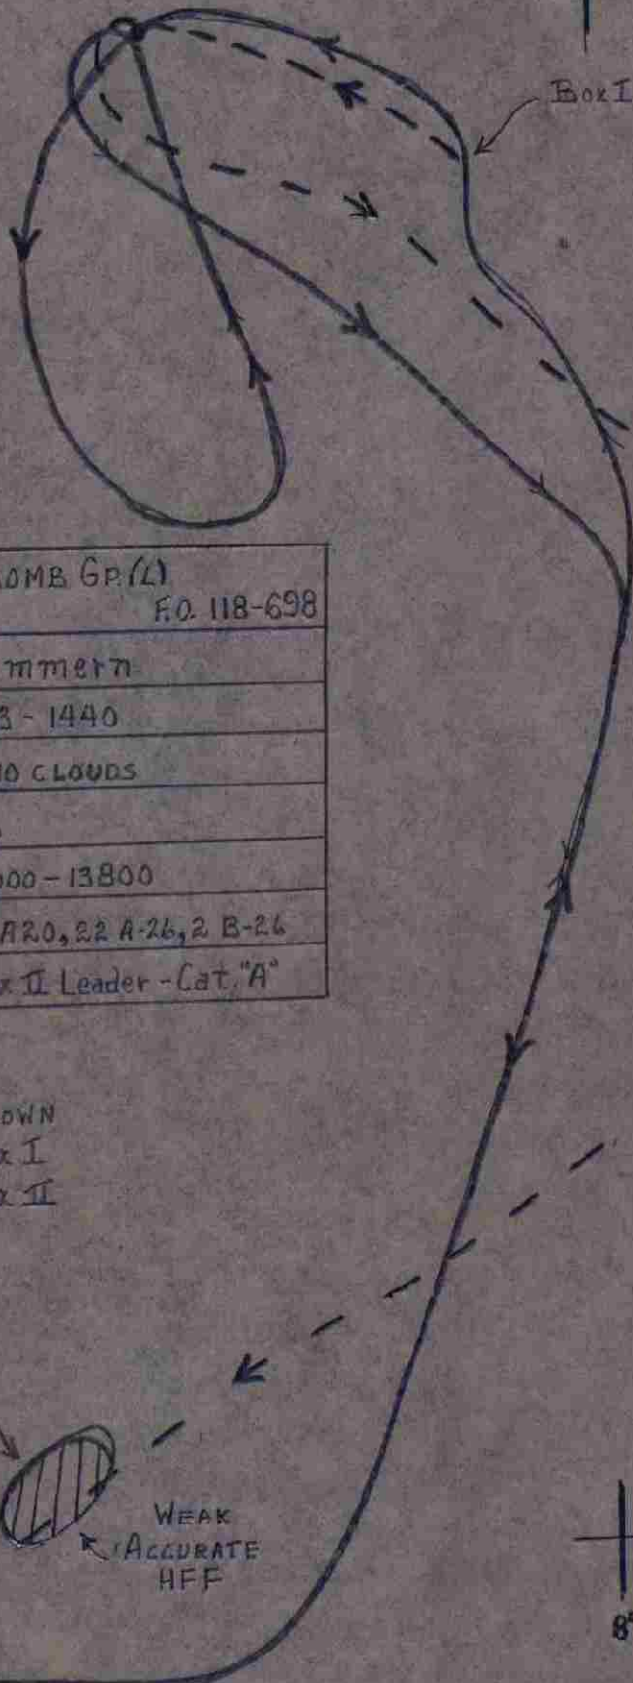 Box I
OMB GP.(L)
F.O. 118-698
mmern
3 - 1440
NO CLOUDS
000 - 13800
A20, 22 A-26, 2 B-26
x II Leader - Cat. "A"
OWN
x I
x II
WEAK
ACCURATE
HFF
8°